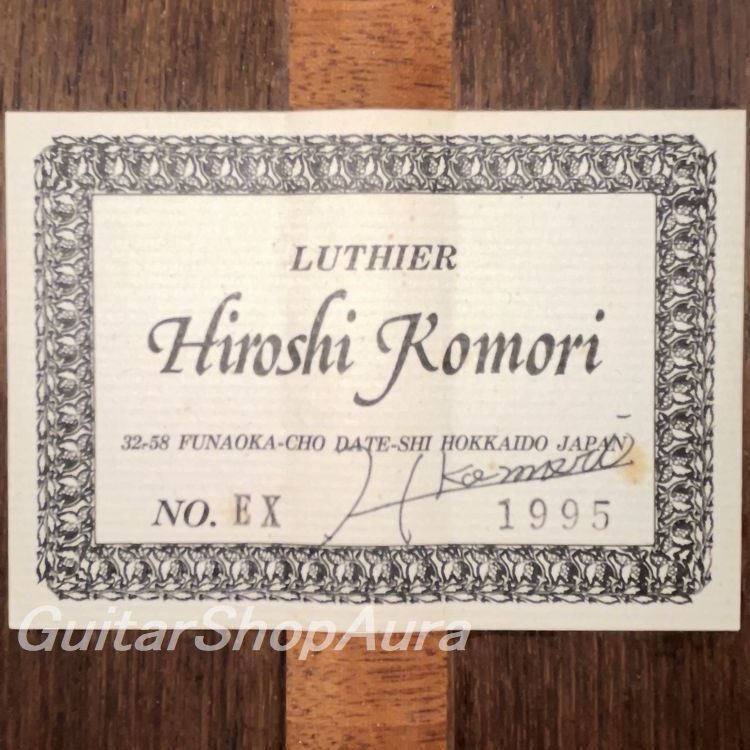 LUTHIER
Hiroshi Komori
32-58 FUNAOKA-CHO DATE-SHI HOKKAIDO JAPAN
H Komori
NO. EX 1995
GuitarShopAura